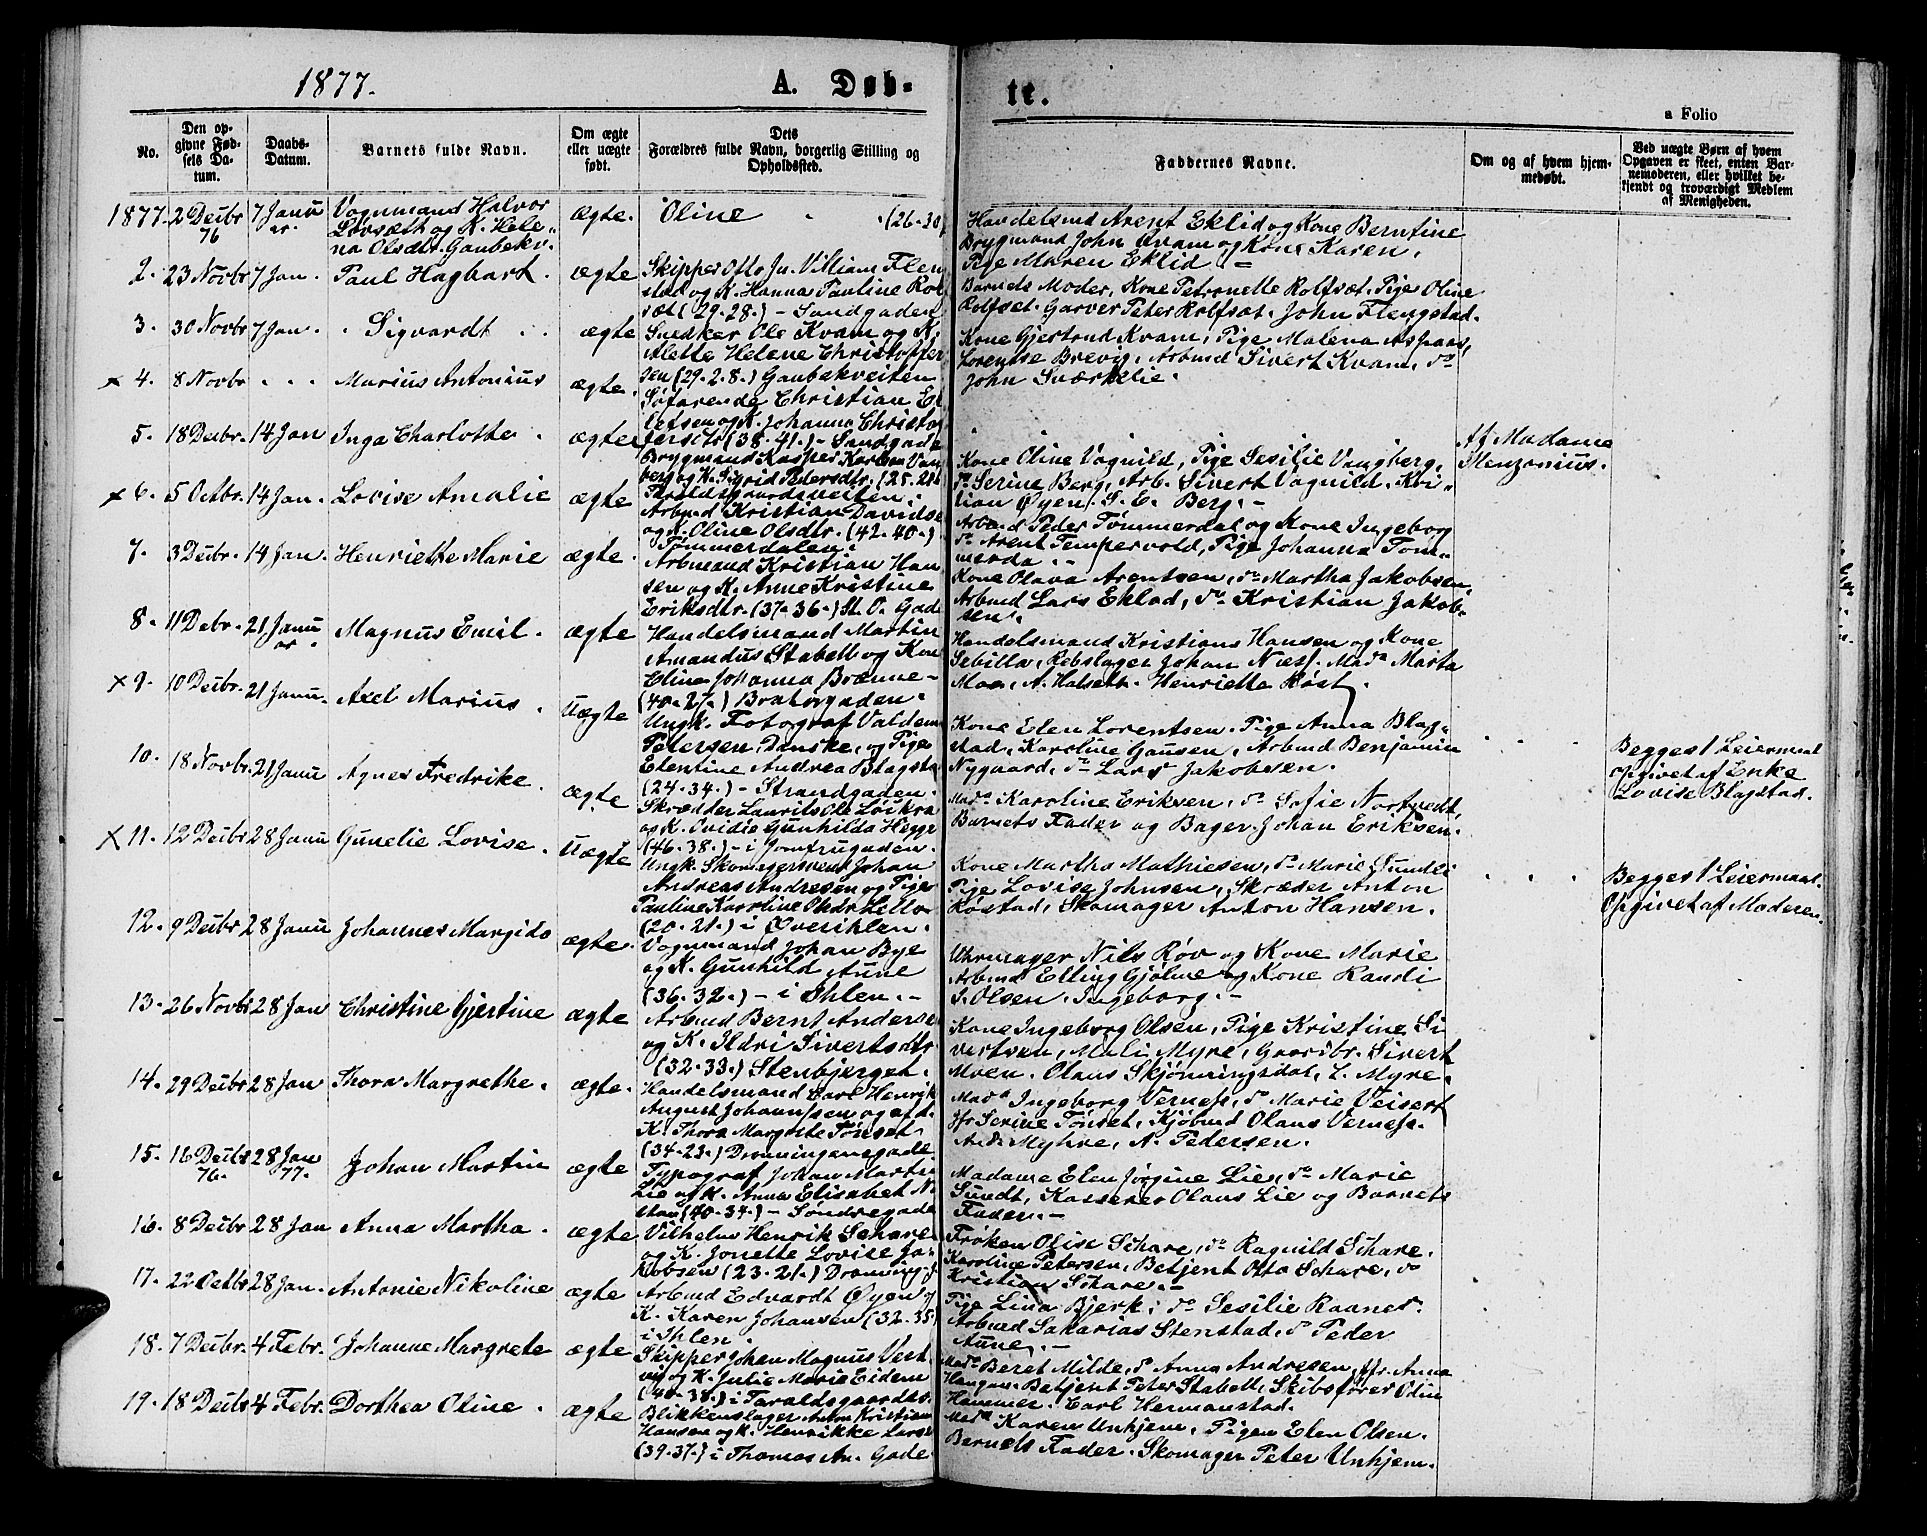 1877.
A. Døb-
te.
a Folio
No.
Den op-
givne Fød-
sels Da-
tum.
Daabs-
Datum.
Barnets fulde Navn.
Om ægte
eller uægte
født.
Dets
Forældres fulde Navn, borgerlig Stilling og
Opholdssted.
Faddernes Navne.
Om og af hvem hjem-
medøbt.
Ved uægte Børn af hvem
Opgaven er skeet, enten Bar-
nemoderen, eller hvilket be-
kjendt og troværdigt Medlem
af Menigheden.
1877. 2 Decbr 76 7 Janu ar. Vognmand Halvor
Lovsæth og K. Hele-
na Olsdtr. Gaubekv.
ægte. Oline (26-30)
Handelsmd Arent Eklid og Kone Berntine
Brygmand John Kvam og Kone Karen,
Pige Maren Eklid -
2. 23 Novbr 7 Jan. Paul Hagbart. ægte
Skipper Otto Ju. Villiam Flen
stad og K. Hanna Pauline Rol
sæt (29-28.) - Sandgaden
Barnets Moder, Kone Petronelle Rolfsæt. Pige Oline
Rolfsæt. Garver Peter Rolfsæt. John Flengstad.
3. 30 Novbr 7 Jan. Sigvardt. ægte
Snedker Ole Kvam og K.
Alette Helene Christoffer
sen (29.28.) Gaubekveiten
Kone Gjertrud Kvam, Pige Malena Aspaas,
Lorentse Brevig, Arbmd Sivert Kvam, do
John Sværkelie.
x 4. 8 Novbr . . . Marius Antonius ægte.
Søfarende Christian El
lefsen og K. Johanna Christof
fersdtr (38-41.) - Sandgade
5. 18 Decbr. 14 Jan Inga Charlotte. ægte
Brygmand Kasper Karlsen Van
berg og K. Sigrid Petersdtr. (25-28
Taraldsgaardsveiten.
Kone Oline Vognild, Pige Sesilie Vangberg,
do Serine Berg, Arb. Sivert Vognild. Kri-
stian Øyen, S. E. Berg. -
Af Madame
Stenzonius.
x 6. 5 Octbr. 14 Jan. Lovise Amalie ægte
Arbmd Kristian Davidse
og K. Oline Olsdtr. (42-40.)
Tømmerdalen.
Arbmd Peder Tømmerdal og Kone Ingeborg
do Arent Tempervold, Pige Johanna Tom-
merda . -
7. 3 Decbr. 14 Jan. Henriette Marie ægte.
Arbmand Kristian Han
sen og K. Anne Kristine
Eriksdtr. (37-36.) St. O. Gade
Kone Olava Arentsen, do Martha Jakobsen,
Arbmd Lars Eklad, do Kristian Jakob-
sen.
8. 11 Debr. 21 Janu ar. Magnus Emil. ægte
Handelsmand Martin
Amandus Stabell og Kone
Eline Johanna Brænne-
(40-27.) Bratørgaden.
Handelsmand Kristians Hansen og Kone
Sebilla, Rebslager Johan Næss. Mada Marta
Moe, A. Halseth. Henriette Røst.
x 9. 10 Decbr. 21 Janu. Axel Marius. Uægte
Ungk. Fotograf Valdem
Petersen, Danske, og Pige
Elentine Andrea Blagsta
(24-34.) - Strandgaden.
Kone Elen Lorentsen. Pige Anna Blag-
stad, Karoline Gausen, Arbmd Benjamin
Nygaard, do Lars Jakobsen.
Begges 1 Leiermaal
opgivet af Enke
Lovise Blagstad.
10. 18 Novbr. 21 Janu Agnes Fredrike. ægte
Skrædder Laurits Ole Loukra
og K. Ovidie Gunhilda Hegge
(46-38.) - i Jomfrugaden.
Mada Karoline Eriksen, do Sofie Nortvedt,
Barnets Fader og Bager Johan Eriksen.
x 11. 12 Decbr 28 Janu Gunelie Lovise. Uægte
Ungk. Skomagersvend Johan
Andreas Andresen og Pige
Pauline Karoline Olsdr Lello
(20-21.) i Øvreihlen.
Kone Martha Mathiesen, do Marie Sundli
Pige Lovise Johnsen, Skræder Anton
Røstad, Skomager Anton Hansen.
Begges 1 Leiermaal.
Opgivet af Moderen.
12. 9 Decbr 28 Janu Johannes Margido ægte.
Vognmand Johan Bye
og K. Gunhild Aune
(36-32.) - i Ihlen. -
Uhrmager Nils Røv og Kone Marie
Arbmd Elling Gjølme og Kone Randi
S. Olsen. Ingeborg. -
13. 26 Novbr 28 Jan Christine Gjertine ægte
Arbmd Bernt Anderse
og K. Ildri Sivertsdtr
(32-33.) Stenbjerget.
Kone Ingeborg Olsen, Pige Kristine Si
vertsen, Mali Myre, Gaardbr. Sivert
Moen. Olaus Skjønningsdal, L. Myre.
14. 29 Decbr 28 Jan Thora Margrethe. ægte.
Handelsmand Carl Henrik
August Johannssen og afd.
K. Thora Margrete Tønset
(34-23.) Dronningensgade
Mada Ingeborg Verness, do Marie Veisert
Jfr Serine Tønset, Kjøbmd Olaus Verness.
And. Myhre, A. Pedersen.
15. 16 Decbr 76. 28 Jan 77. Johan Martin ægte
Typograf Johan Martin
Lie og K. Anna Elisabet N.
stad (40-34.) - Søndregade
Madame Elen Jørgine Lie, do Marie
Sundt, Kasserer Olaus Lie og Barnets
Fader. -
16. 8 Decbr 28 Jan Anna Martha. ægte.
Vilhelm Henrik Schare
og K. Jonette Lovise Ja-
kobsen (23-21.) Dronning.
Frøken Olise Schare, do Ragnild Schare.
Karoline Petersen, Betjent Otto Schare, do
Kristian Schare. -
17. 22 Octbr 28 Jan. Antonie Nikoline ægte
Arbmd Edvardt Øyen og
K. Karen Johansen (32-35)
i Ihlen.
Pige Lina Bjerk, do Sesilie Raanes.
Arbmd Sakarias Stenstad, do Peder
Aune. -
18. 7 Decbr. 4 Febr. Johanne Margrete ægte
Skipper Johan Magnus Vest
og K. Julie Marie Eidem
(40-38.) i Taraldsgaardsv.
Mada Beret Milde, do Anna Andresen, Jfr. Anna
Haugan. Betjent Peter Stabell, Skibsfører Odin
Hammer. Carl Hermanstad.
19. 18 Decbr 4 Febr. Dorthea Oline. ægte
Blikkenslager Anton Kristian
Hansen og K. Henrikke Larse
(39-37.) i Thomas An. Gade
Mada Karen Unhjem, Pigen Elen Olsen.
Barnets Fader. Skomager Peter Unhjem.